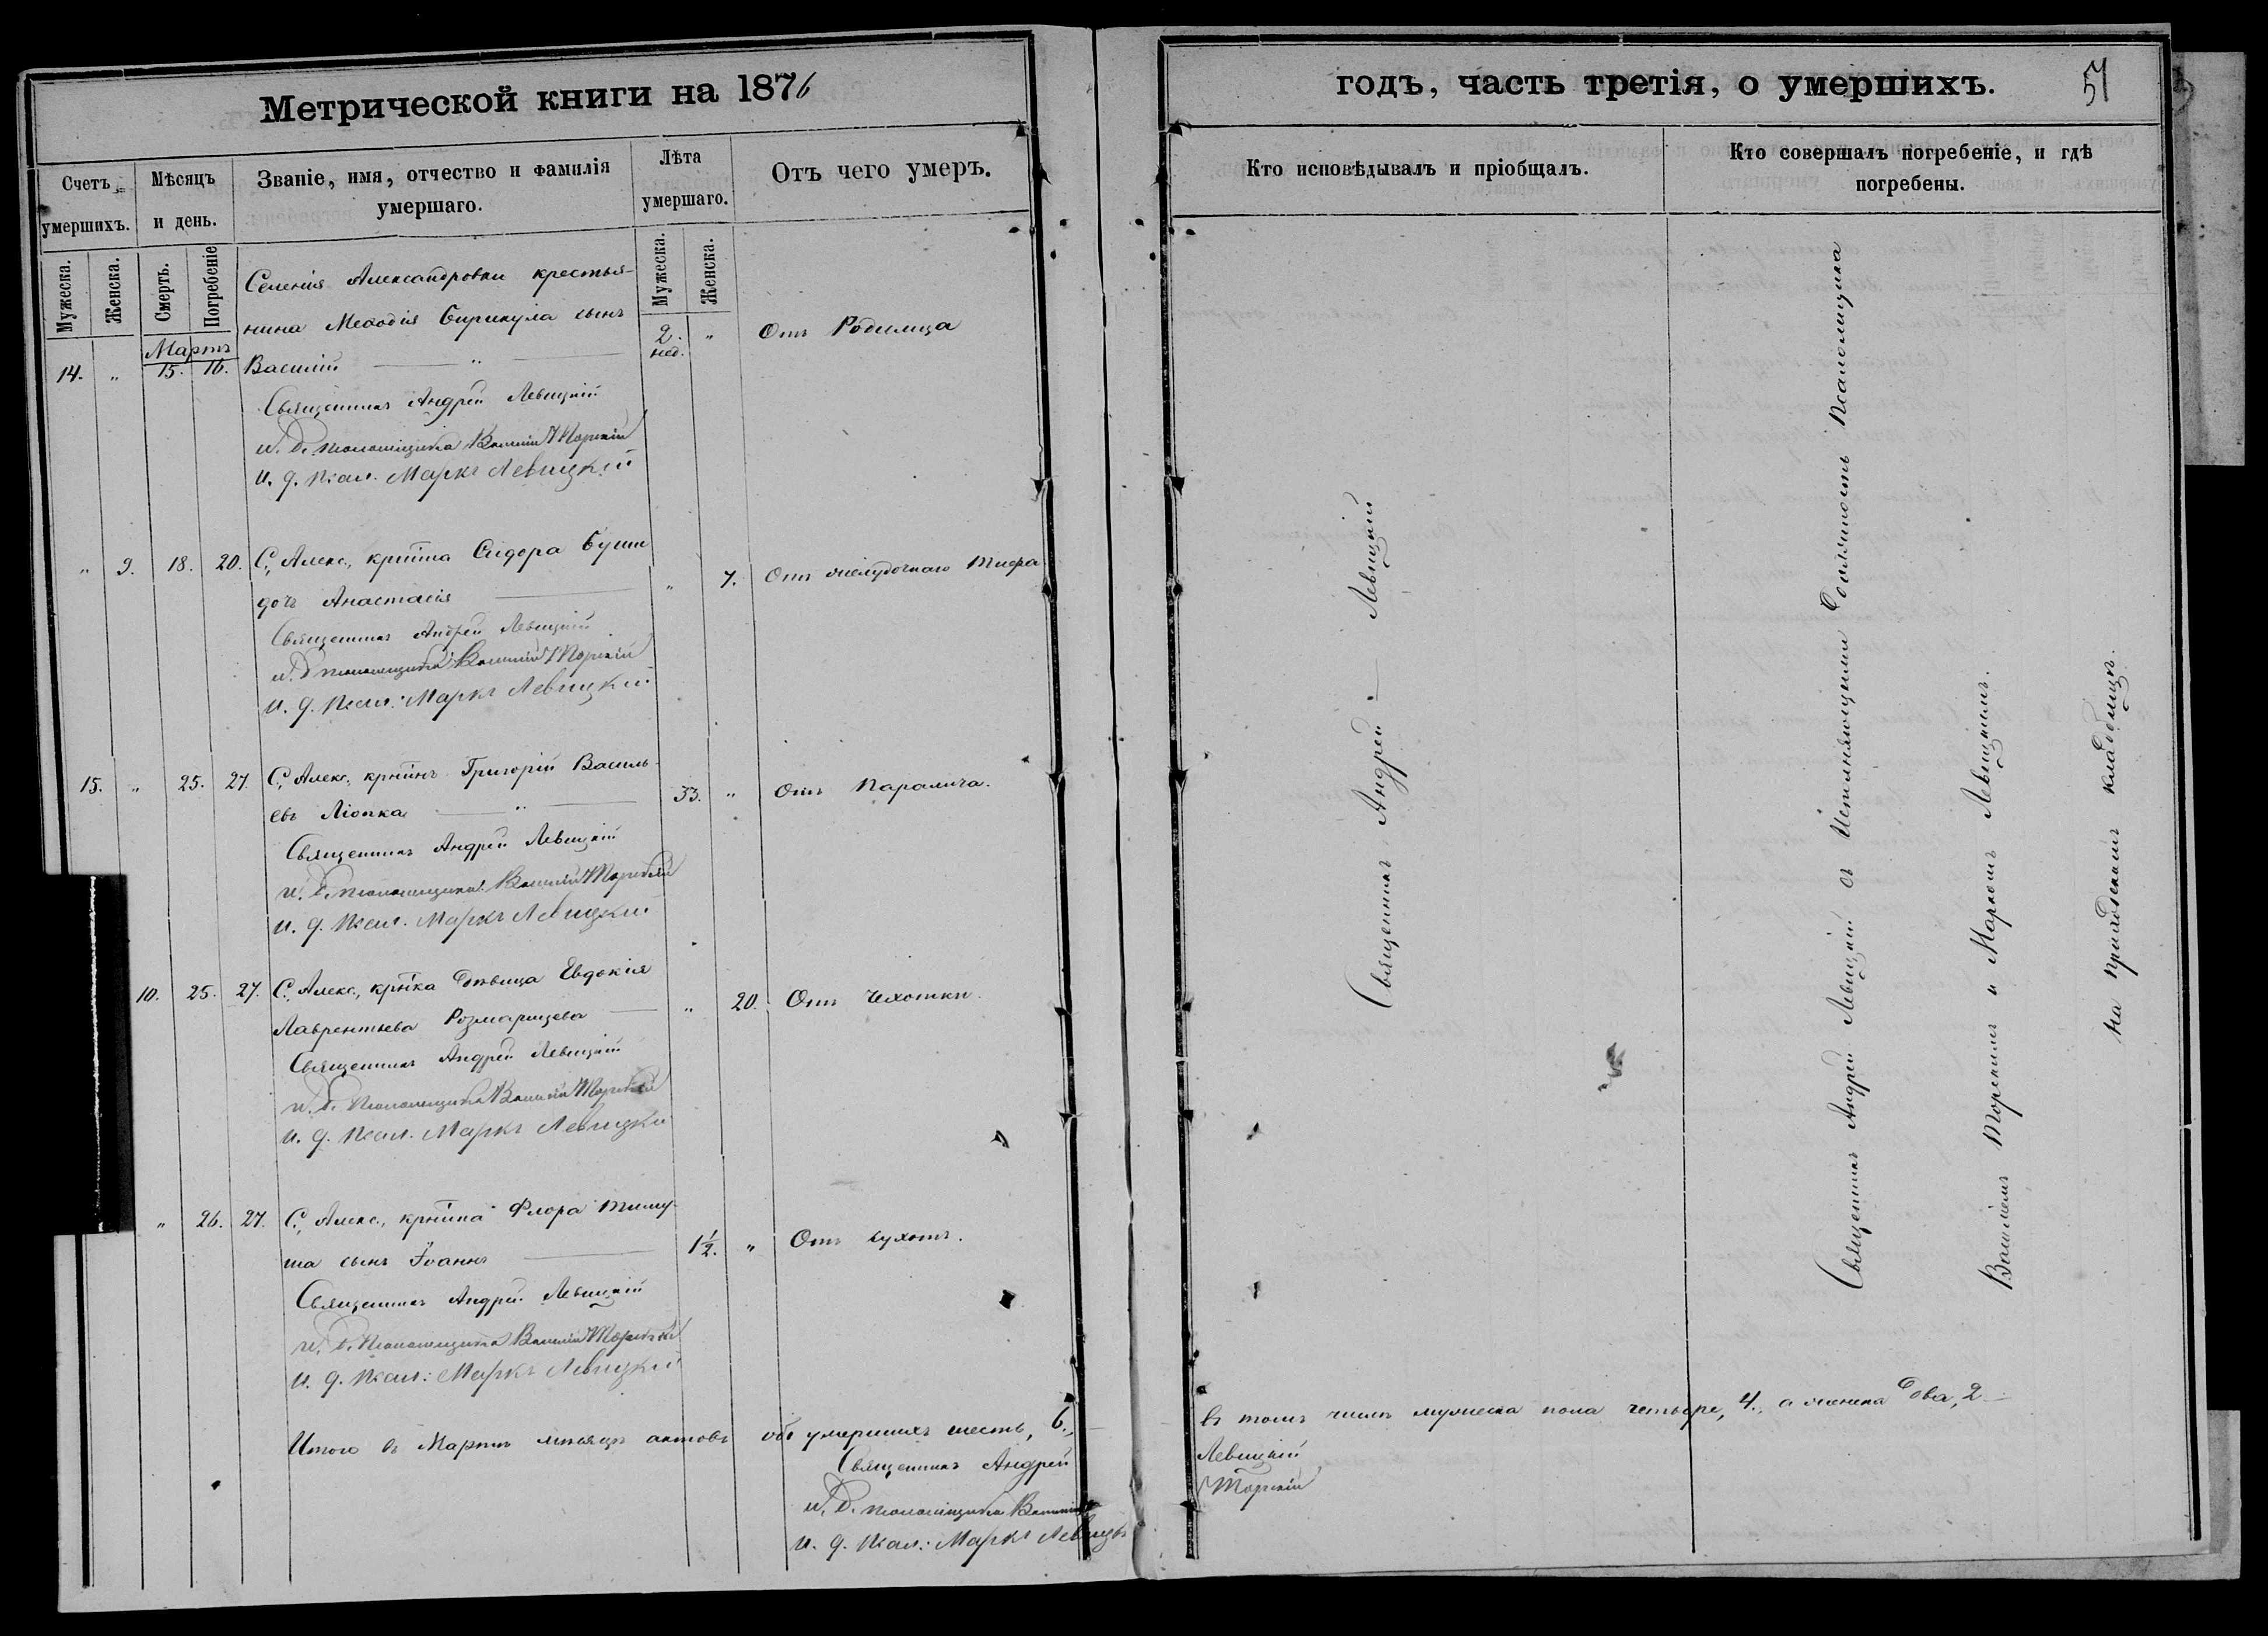 Метрической книги на 1876
годъ, часть третія, о умершихъ.
51
Счетъ умершихъ.
Мѣсяцъ и день.
Званіе, имя, отчество и фамилія умершаго.
Лѣта умершаго.
Отъ чего умеръ.
Кто исповѣдывалъ и пріобщалъ.
Кто совершалъ погребеніе, и гдѣ погребены.
Мужеска.
Женска.
Смерть.
Погребеніе
Мужеска.
Женска.
Селенія Александровки крестья-
нина Меѳодія Бирикула сынъ
Мартъ
14. " 15. 16. Василій — " — 2. нед. " Отъ Родимца
Священникъ Андрей Левицкій
И. д. псаломщика Василій Торскій
и. д. псал. Маркъ Левицкій
" 9. 18. 20. С. Алекс., кртіна Сидора Бушн
дочь Анастасія — " 7. Отъ желудочнаго тифа
Священникъ Андрей Левицкій
И. д. псаломщика Василій Торскій
и. д. псал. Маркъ Левицкій
15. " 25. 27. С. Алекс., кртінъ Григорій Василь-
евъ Ліопка — " — 53. " Отъ Паралича.
Священникъ Андрей Левицкій
И. д. псаломщика Василій Торскій
и. д. псал. Маркъ Левицкій
10. 25. 27. С. Алекс., кртка дѣвица Евдокія
Лаврентьева Розмарицева — " 20. Отъ чехотки.
Священникъ Андрей Левицкій
И. д. псаломщика Василій Торскій
и. д. псал. Маркъ Левицкій
" 26. 27. С. Алекс., кртіна Флора Тиму-
ша сынъ Іоаннъ — 1½. " Отъ сухотъ.
Священникъ Андрей Левицкій
И. д. псаломщика Василій Торскій
и. д. псал: Маркъ Левицкій
Итого въ Мартѣ мѣсяцѣ актовъ объ умершихъ шесть, 6., въ томъ числѣ мужеска пола четыре, 4., а женска два, 2.
Священникъ Андрей Левицкій
И. д. псаломщика Василій Торскій
и. д. псал: Маркъ Левицкъ
Священникъ Андрей — Левицкій
Священникъ Андрей Левицкій съ Исполняющими должность Псаломщика
Василіемъ Торскимъ и Маркомъ Левицкимъ.
на приходскомъ кладбищѣ.